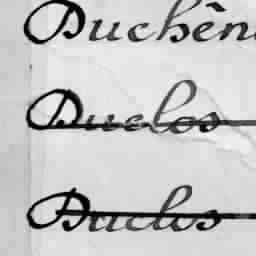 Duchên
Duclos
Duclos